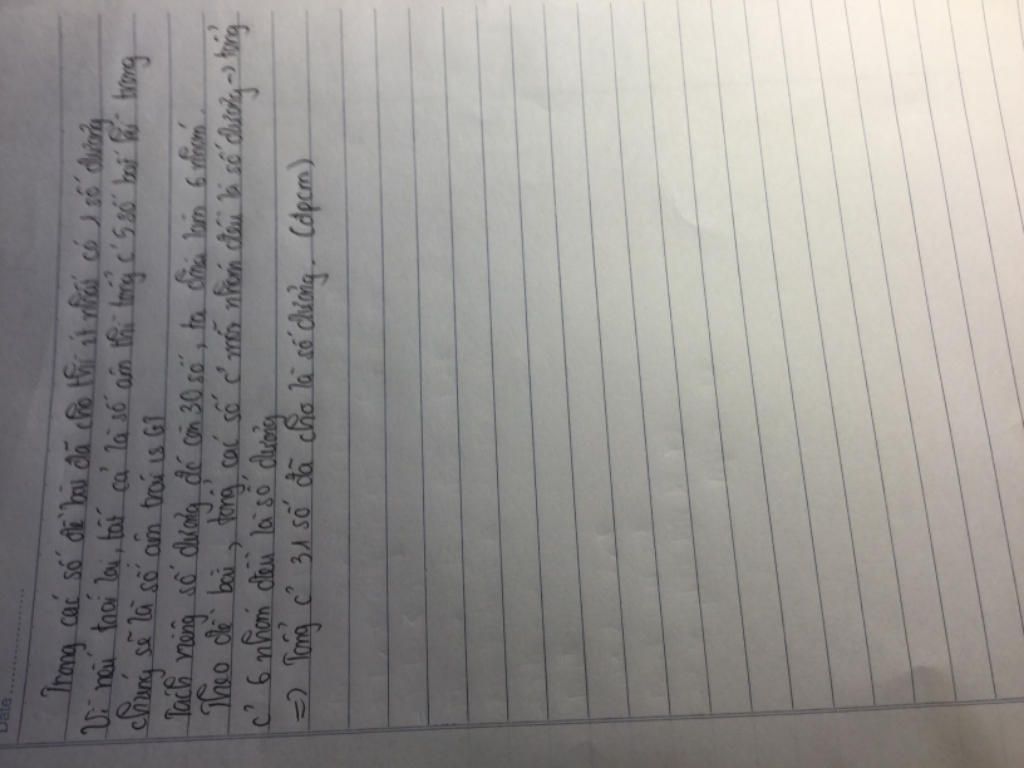 Date
Trong các số đề bài đã cho thì ít nhất có 1 số dương
Vì nếu trái lại, tất cả là số âm thì tổng c' 5 số bất kì trong
chúng sẽ là số âm trái vs GT
Tách riêng số dương đó còn 30 số, ta chia làm 6 nhóm.
Theo đề bài, tổng các số c' mỗi nhóm đều là số dương → tổng
c' 6 nhóm đều là số dương
=> Tổng c' 31 số đã cho là số dương. (đpcm)